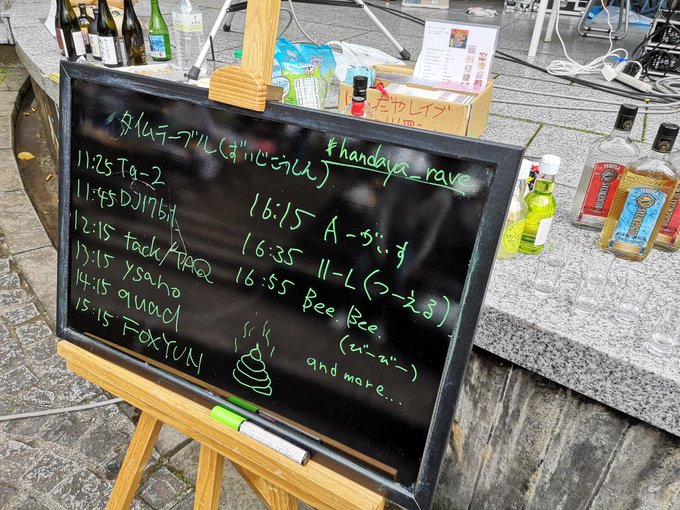 タイムテーブル(ずいじこうしん)
#handaya_rave
11:25 Ta-2
11:45 DJ17bit
12:15 tack/TAQ
13:15 ysano
14:15 quad
15:15 FOXYUN
16:15 A-がいす
16:35 II-L(つーえる)
16:55 Bee Bee.
(びーびー)
and more...